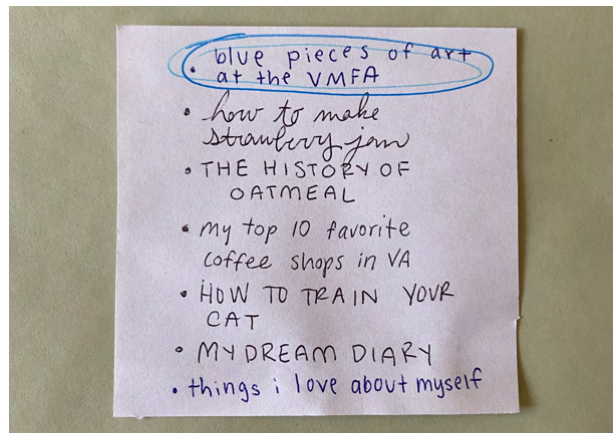 • blue pieces of art
at the VMFA
• how to make
strawberry jam
• THE HISTORY OF
OATMEAL
• my top 10 favorite
coffee shops in VA
• HOW TO TRAIN YOUR
CAT
• MY DREAM DIARY
• things i love about myself